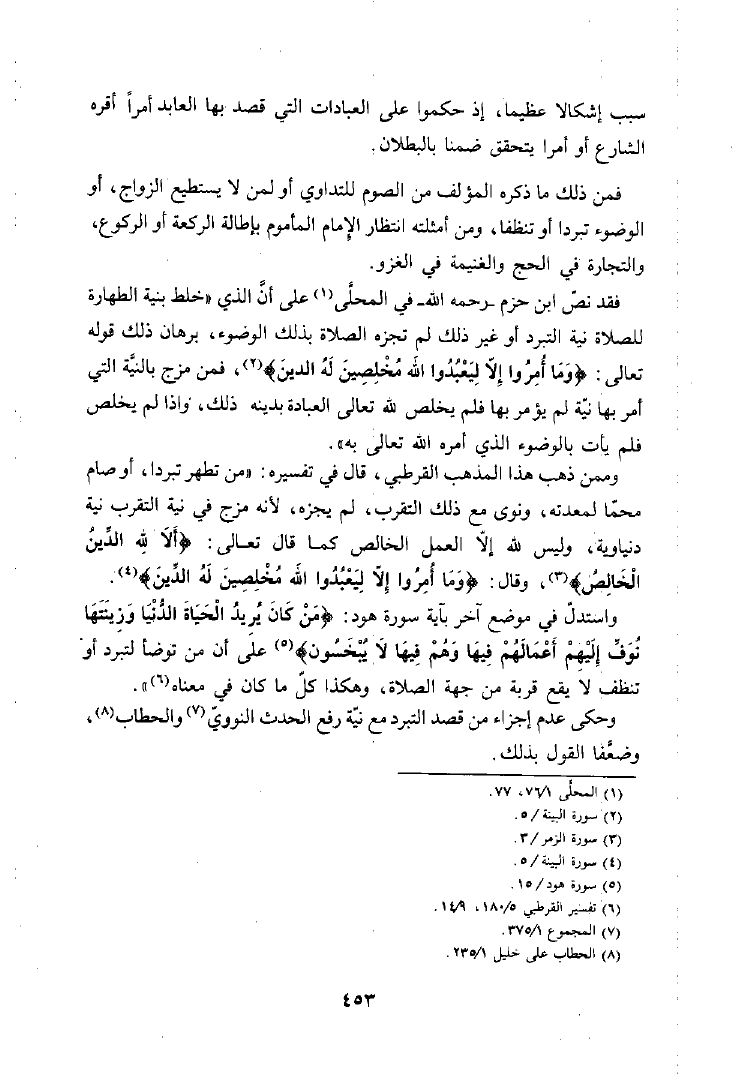 سبب إشكالا عظيما، إذ حكموا على العبادات التي قصد بها العابد أمراً أقره
الشارع أو أمرا يتحقق ضمنا بالبطلان.
فمن ذلك ما ذكره المؤلف من الصوم للتداوي أو لمن لا يستطيع الزواج، أو
الوضوء تبردا أو تنظفا، ومن أمثلته انتظار الإمام المأموم بإطالة الركعة أو الركوع،
والتجارة في الحج والغنيمة في الغزو.
فقد نصّ ابن حزم ـرحمه اللهـ في المحلَّى(١) على أنَّ الذي «خلط بنية الطهارة
للصلاة نية التبرد أو غير ذلك لم تجزه الصلاة بذلك الوضوء، برهان ذلك قوله
تعالى: ﴿وَمَا أُمِرُوا إِلاَّ لِيَعْبُدُوا الله مُخْلِصِينَ لَهُ الدينَ﴾(٢)، فمن مزج بالنيَّة التي
أمر بها نيّة لم يؤمر بها فلم يخلص لله تعالى العبادة بدينه ذلك، وإذا لم يخلص
فلم يأت بالوضوء الذي أمره الله تعالى به».
وممن ذهب هذا المذهب القرطبي، قال في تفسيره: «من تطهر تبردا، أو صام
محمّا لمعدته، ونوى مع ذلك التقرب، لم يجزه، لأنه مزج في نية التقرب نية
دنياوية، وليس لله إلاّ العمل الخالص كما قال تعالى: ﴿أَلَا لِلهِ الدِّينُ
الْخَالِصُ﴾(٣)، وقال: ﴿وَمَا أُمِرُوا إِلاَّ لِيَعْبُدُوا الله مُخْلِصِينَ لَهُ الدِّينَ﴾(٤).
واستدلّ في موضع آخر بآية سورة هود: ﴿مَنْ كَانَ يُرِيدُ الْحَيَاةَ الدُّنْيَا وَزِينَتَهَا
نُوَفِّ إِلَيْهِمْ أَعْمَالَهُمْ فِيهَا وَهُمْ فِيهَا لَا يُبْخَسُون﴾(٥) على أن من توضأ لتبرد أو
تنظف لا يقع قربة من جهة الصلاة، وهكذا كلّ ما كان في معناه(٦)».
وحكى عدم إجزاء من قصد التبرد مع نيّة رفع الحدث النوويّ(٧) والحطاب(٨)،
وضعَّفا القول بذلك.
(١) المحلَّى ٧٦/١، ٧٧.
(٢) سورة البينة/٥.
(٣) سورة الزمر/٣.
(٤) سورة البينة/٥.
(٥) سورة هود/١٥.
(٦) تفسير القرطبي ١٨٠/٥، ١٤/٩.
(٧) المجموع ٣٧٥/١.
(٨) الحطاب على خليل ٢٣٥/١.
٤٥٣